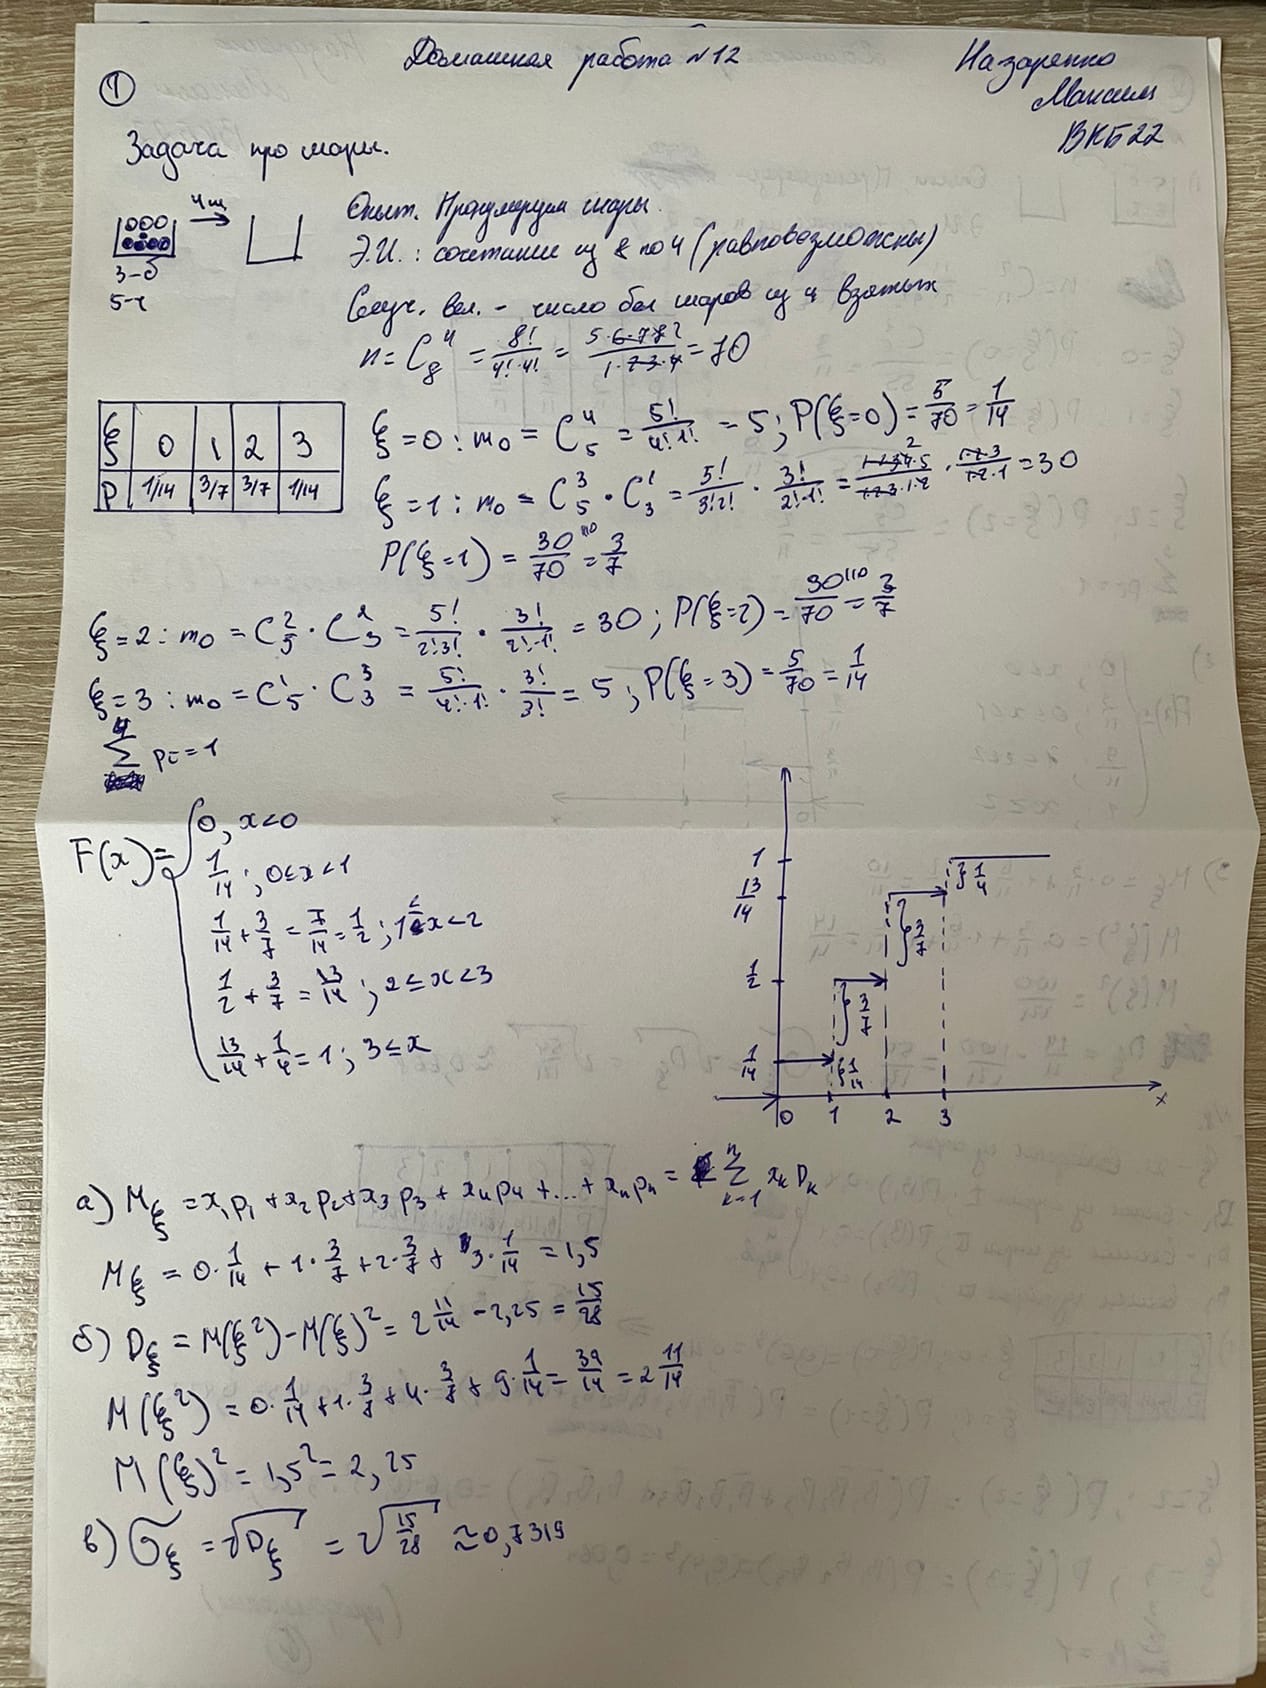 Домашняя работа №12
Назаренко
Максим
ВКБ22
1
Задача про шары.
4 ш
3-б
5-ч
Опыт. Пронумеруем шары.
Э.И.: сочетание из 8 по 4 (равновозможны)
Случ. вел. - число бел шаров из 4 взятых
n = C₈⁴ = 8!/(4!·4!) = (5·6·7·8 2)/(1·2·3·4) = 70
ξ 0 1 2 3
P 1/14 3/7 3/7 1/14
ξ=0 : m₀ = C₅⁴ = 5!/(4!·1!) = 5; P(ξ=0) = 5/70 = 1/14
ξ=1 : m₀ = C₅³ · C₃¹ = 5!/(3!2!) · 3!/(2!·1!) = (1·2·3·4·5)/(1·2·3·1·2) · (1·2·3)/(1·2·1) = 30
P(ξ=1) = 30/70 = 3/7
ξ=2 : m₀ = C₅² · C₃² = 5!/(2!3!) · 3!/(2!·1!) = 30; P(ξ=2) = 30/70 = 3/7
ξ=3 : m₀ = C₅¹ · C₃³ = 5!/(4!·1!) · 3!/3! = 5; P(ξ=3) = 5/70 = 1/14
4
Σ pᵢ = 1
F(x) = { 0, x<0
1/14 ; 0≤x<1
1/14 + 3/7 = 7/14 = 1/2 ; 1≤x<2
1/2 + 3/7 = 13/14 ; 2≤x<3
13/14 + 1/4 = 1 ; 3≤x
1
13/14
1/2
1/14
} 1/4
} 3/7
} 3/7
} 1/14
0 1 2 3 x
а) Mξ = x₁p₁ + x₂p₂ + x₃p₃ + x₄p₄ + ... + xₙpₙ = Σ (k=1, n) xₖpₖ
Mξ = 0·1/14 + 1·3/7 + 2·3/7 + 3·1/14 = 1,5
б) Dξ = M(ξ²) - M(ξ)² = 2 11/14 - 2,25 = 15/28
M(ξ²) = 0·1/14 + 1·3/7 + 4·3/7 + 9·1/14 = 39/14 = 2 11/14
M(ξ)² = 1,5² = 2,25
в) σξ = √Dξ = √(15/28) ≈ 0,7319